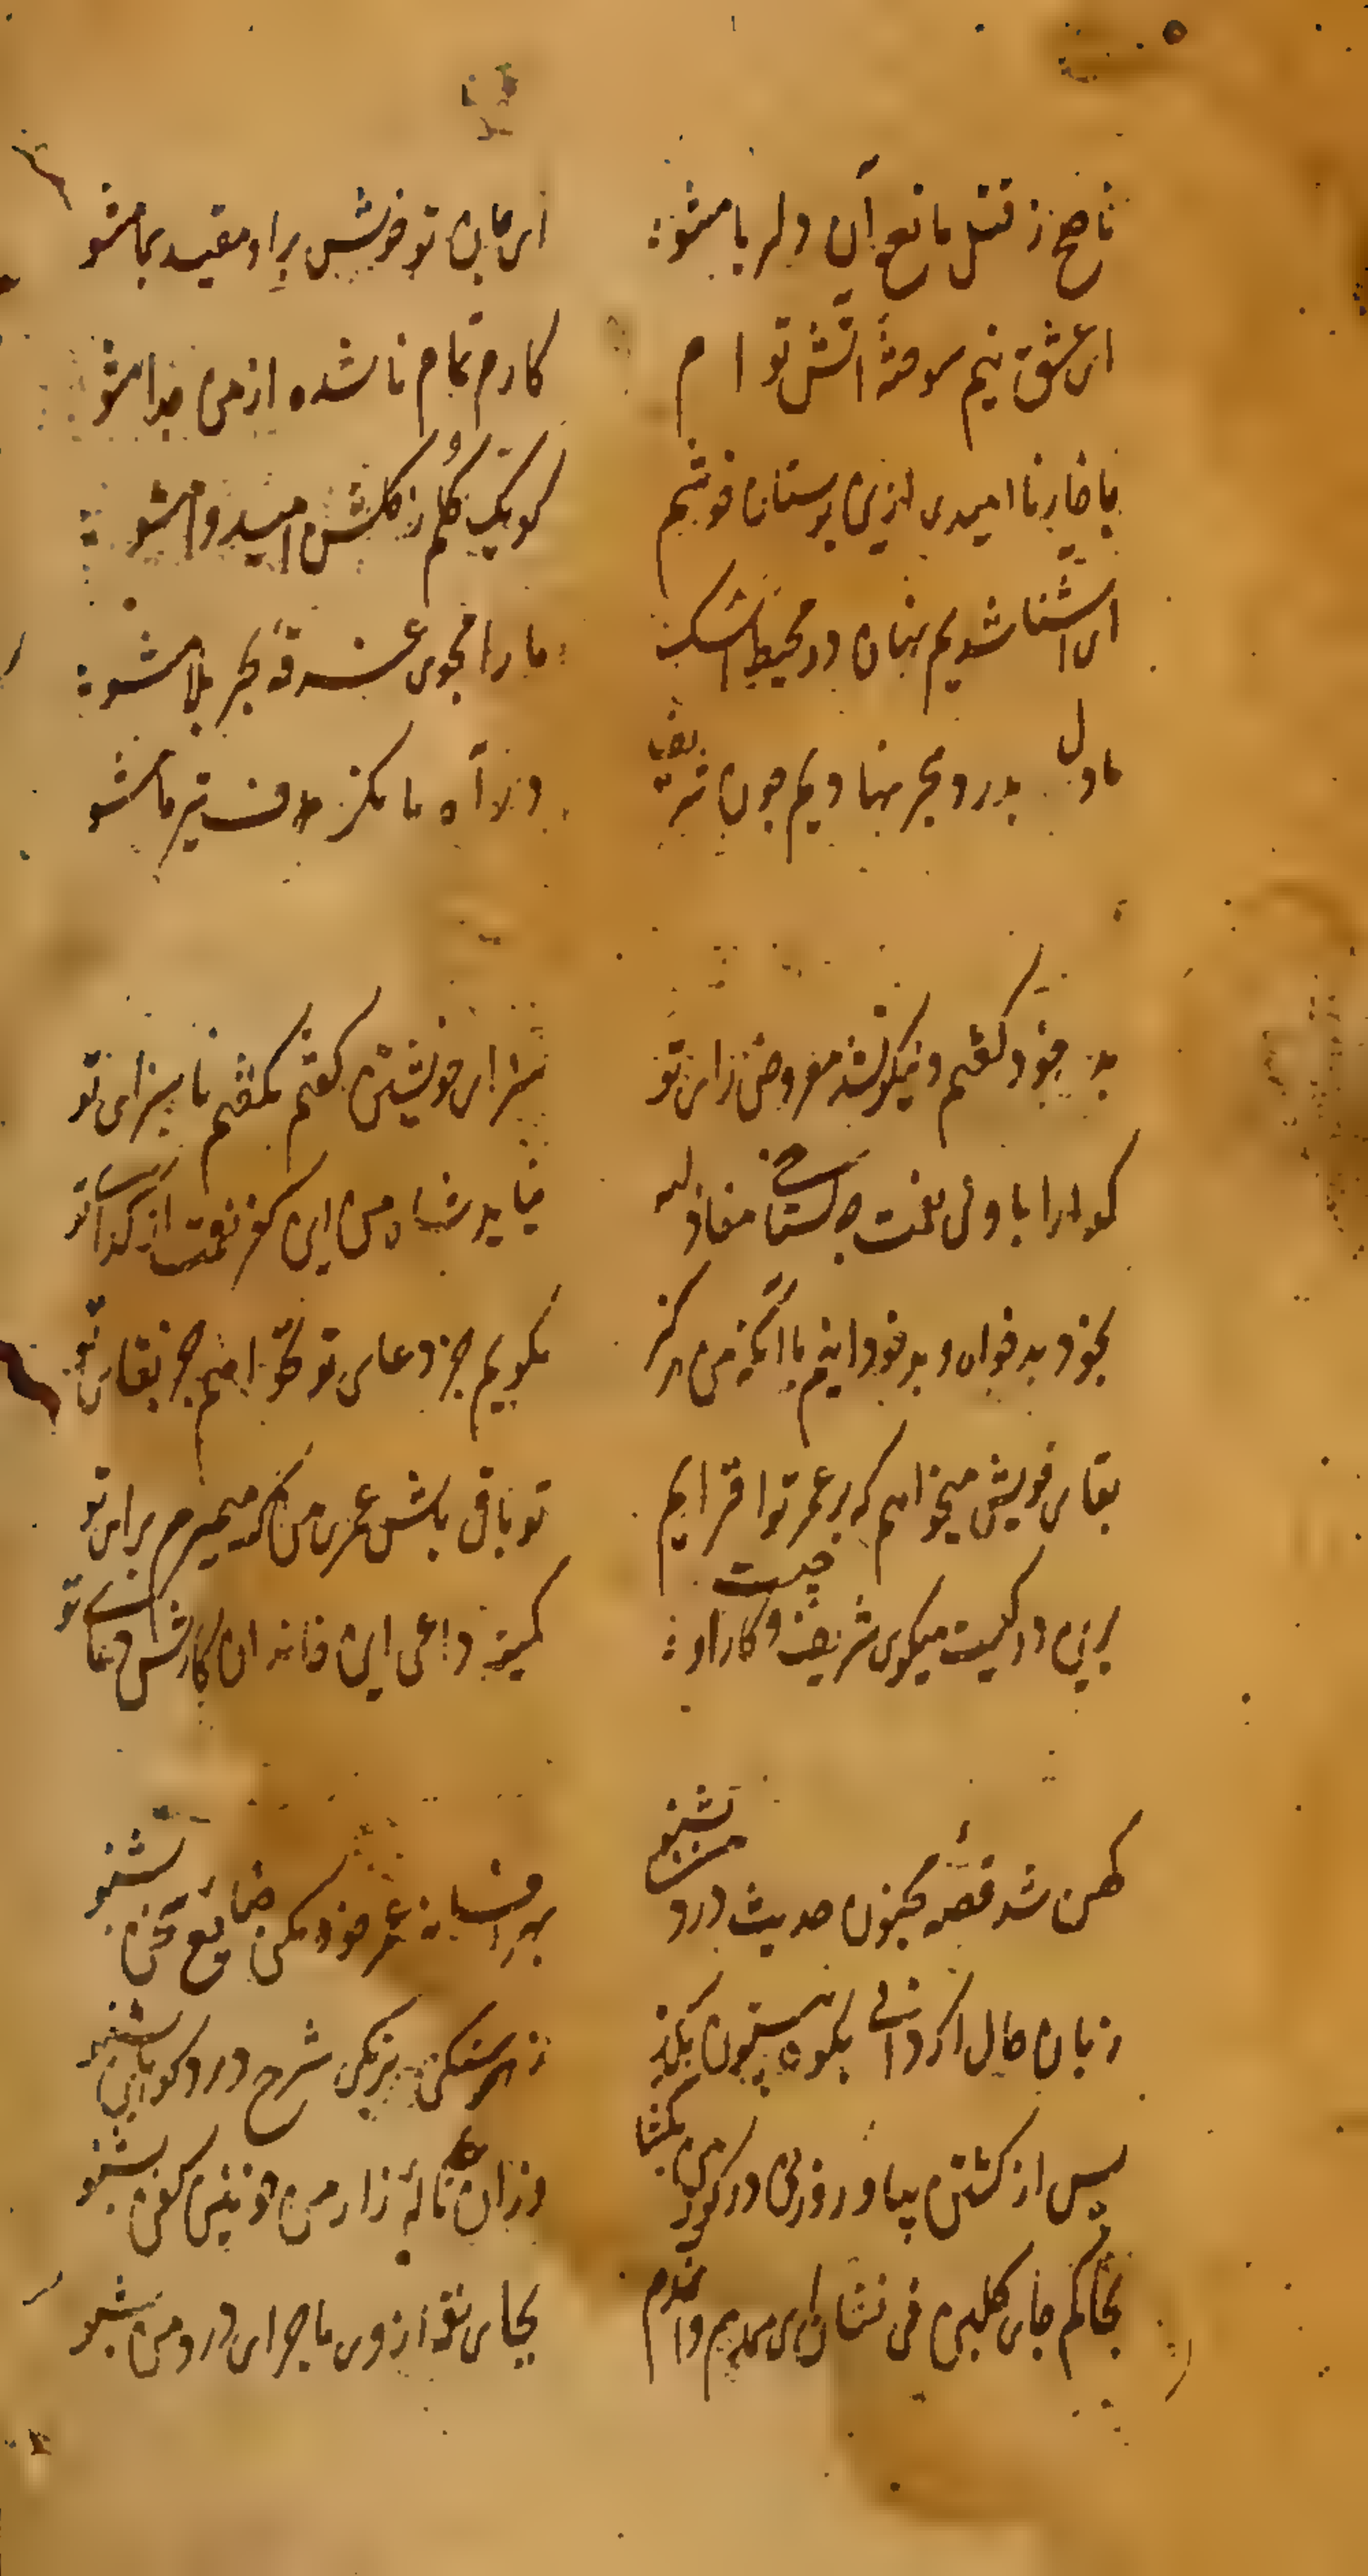 ناصح ز قتل مانع آن دلربا مشو
ای جان تو خویش براو مقید بما مشو
ای عشق نیم سوختهٔ آتش تو ام
کارم تمام ناشده از من جدا مشو
با خار ناامیدی ازین بوستان خوشم
کو یک گلم ز گلشن امید وا مشو
ای آشنا شدیم نهان در محیط اشک
ما را مجوی غرقهٔ بحر بلا مشو
ما دل بدرد هجر نهادیم چون شریف
در آه ما مکن هدف تیر ما مشو
بد خود گفتم و نیکو نشد مغروضی زای تو
سزای خویشتن گفتم نگفتم ناسزای تو
گوارا با ولی نعمت
نیاید شاد من این کفر نعمت از گدای تو
بخود بدخواه و بدخود اینم با آنکه من هرگز
نگویم جز دعای تو نخواهم جز بقای تو
بقای خویش میخواهم که بر عمر تو افزایم
تو باقی باش عمر من که میمیرم برای تو
برین در کیست میگوی شریف و کار او چیست
کمینه داعی این خاندان کارش دعای تو
کهن شد قصهٔ مجنون حدیث درد من بشنو
بهر افسانه عمر خود مکن ضایع سخن بشنو
زبان حال اگر دانی بکوه بیستون بگذر
ز هر سنگی بزنگی شرح درد کوهکن بشنو
پس از کشتن بیا و روزنی در گور من بگشا
وزان نالهٔ زار من خونین کفن بشنو
بخاکم جای گلبن نی نشان ای همدم و آندم
بجای نی از وی ماجرای درد من بشنو